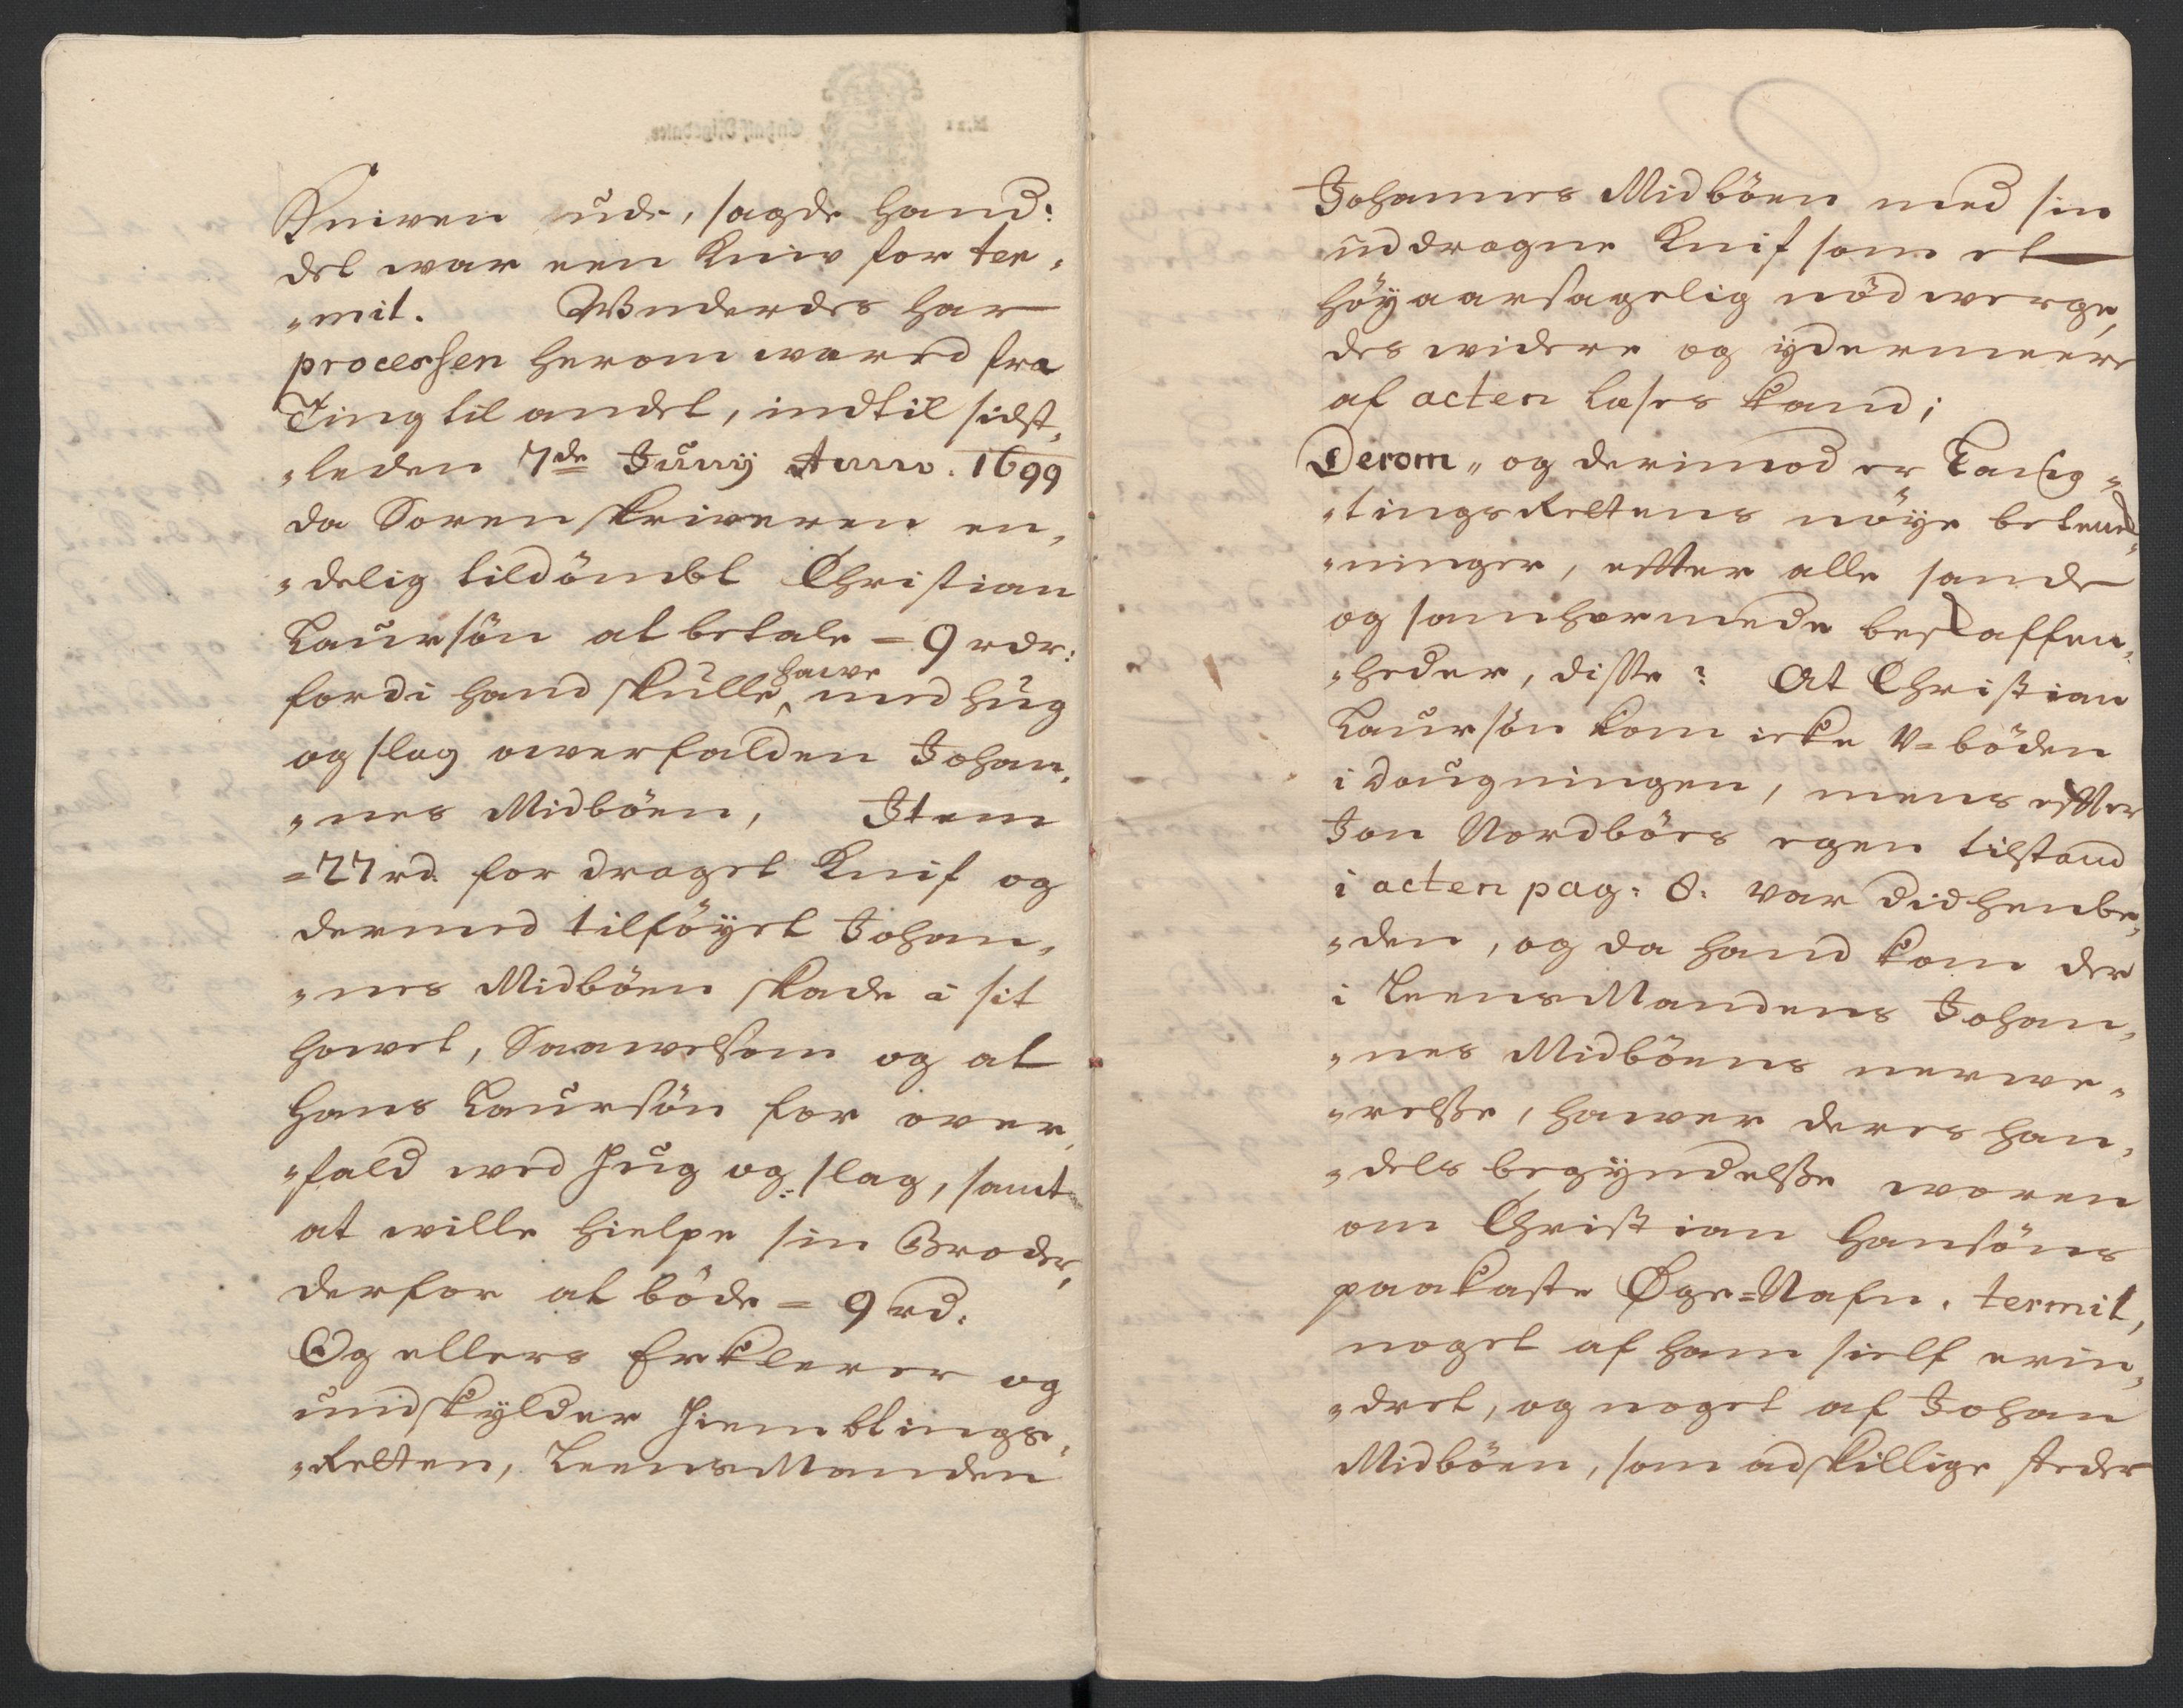 Kniven ude, sagde hand:
det war een Kniv for ter,
"mit. Wnderdes har
processen herom wared fra
Ting til andet, indtil sidst,
"leden 7de Juny Anno. 1699
da Sorenskriveren en,
"delig tildömbt Christian
Laursön at betale = 9 rdr:
fordi hand skulle hawe med hug
og slag owerfalden Johan,
"nes Midböen, Item
=27 rd. for draget Knif og
dermed tilföyet Johan,
"nes Midböen skade i sit
howet, Saawelsom og at
Hans Laursön for over,
"fald med Hug og slag, samt
at wille hielpe sin Broder,
derfor at böde = 9 rd:
Og ellers Erklerer og
undskylder Hiembtings,
"Retten, LeensManden
Johannes Midböen med sin
uddragne Knif som et
höyaarsagelig nödwerge,
des widere og ydermeere
af acten læses kand;
Derom, og derimod er Laug,
"tingsRettens nöye betenk,
"ninger, effter alle sande
og sanhermede beskaffen,
"heder, disse: At Christian
Laursön kom icke V=böden
i Dougningen, mens effter
Jon Nordböes egen tilstand
i acten pag: 8: var didhenbe,
"den, og da hand kom der
i LeensMandens Johan,
"nes Midböens nerwe,
"relsse, hawer deres han,
"dels begyndelsse woren
om Christian Hansöns
paakaste Øge=Nafn. termit,
noget af ham sielf erin,
"dret, og noget af Johan
Midböen, som adskillige steder